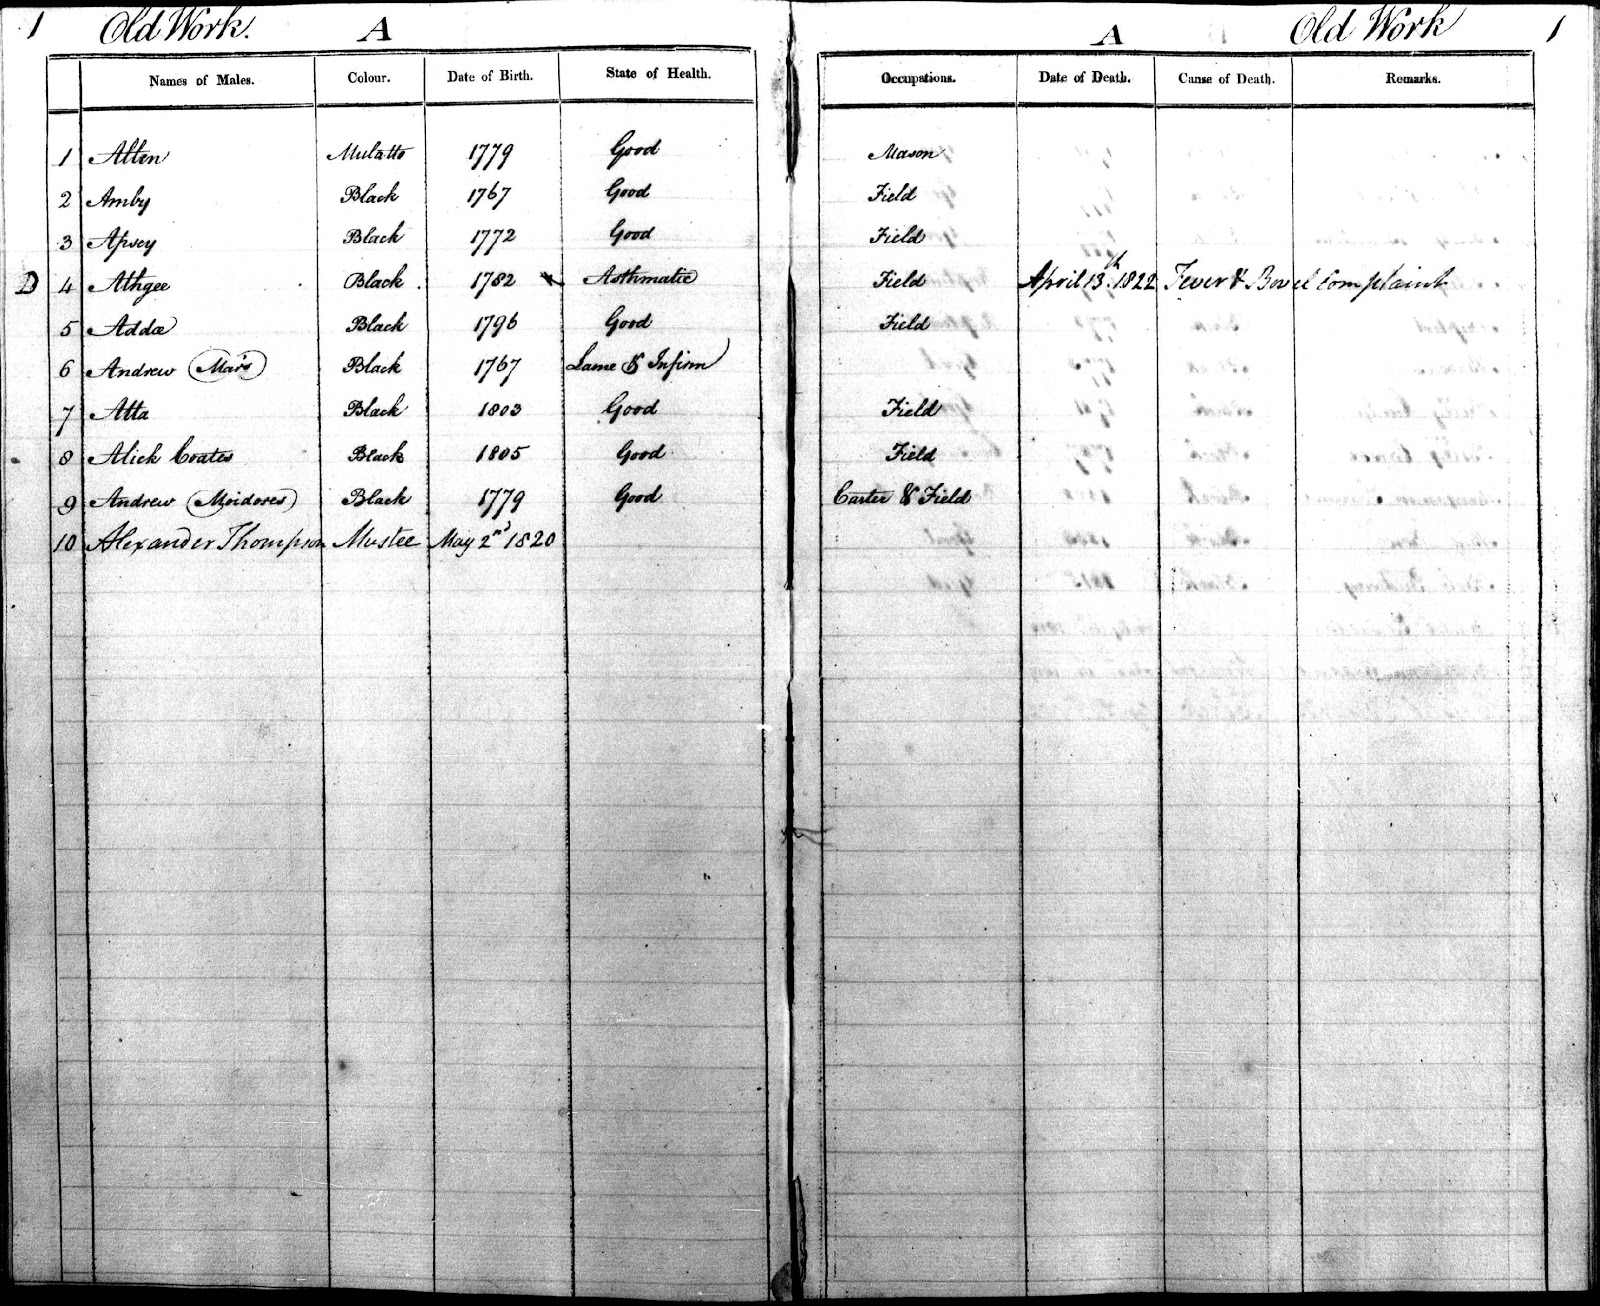 1 Old Work. A
A Old Work 1
Names of Males. Colour. Date of Birth. State of Health. Occupations. Date of Death. Cause of Death. Remarks.
1 Allen Mulatto 1779 Good Mason
2 Amby Black 1767 Good Field
3 Apsey Black 1772 Good Field
D 4 Athgee Black 1782 Asthmatic Field April 13th. 1822 Fever & Bowel Complaint
5 Adda Black 1796 Good Field
6 Andrew (Mars) Black 1767 Lame & Infirm
7 Atta Black 1803 Good Field
8 Alick Coates Black 1805 Good Field
9 Andrew (Moidores) Black 1779 Good Carter & Field
10 Alexander Thompson Mustee May 2nd 1820